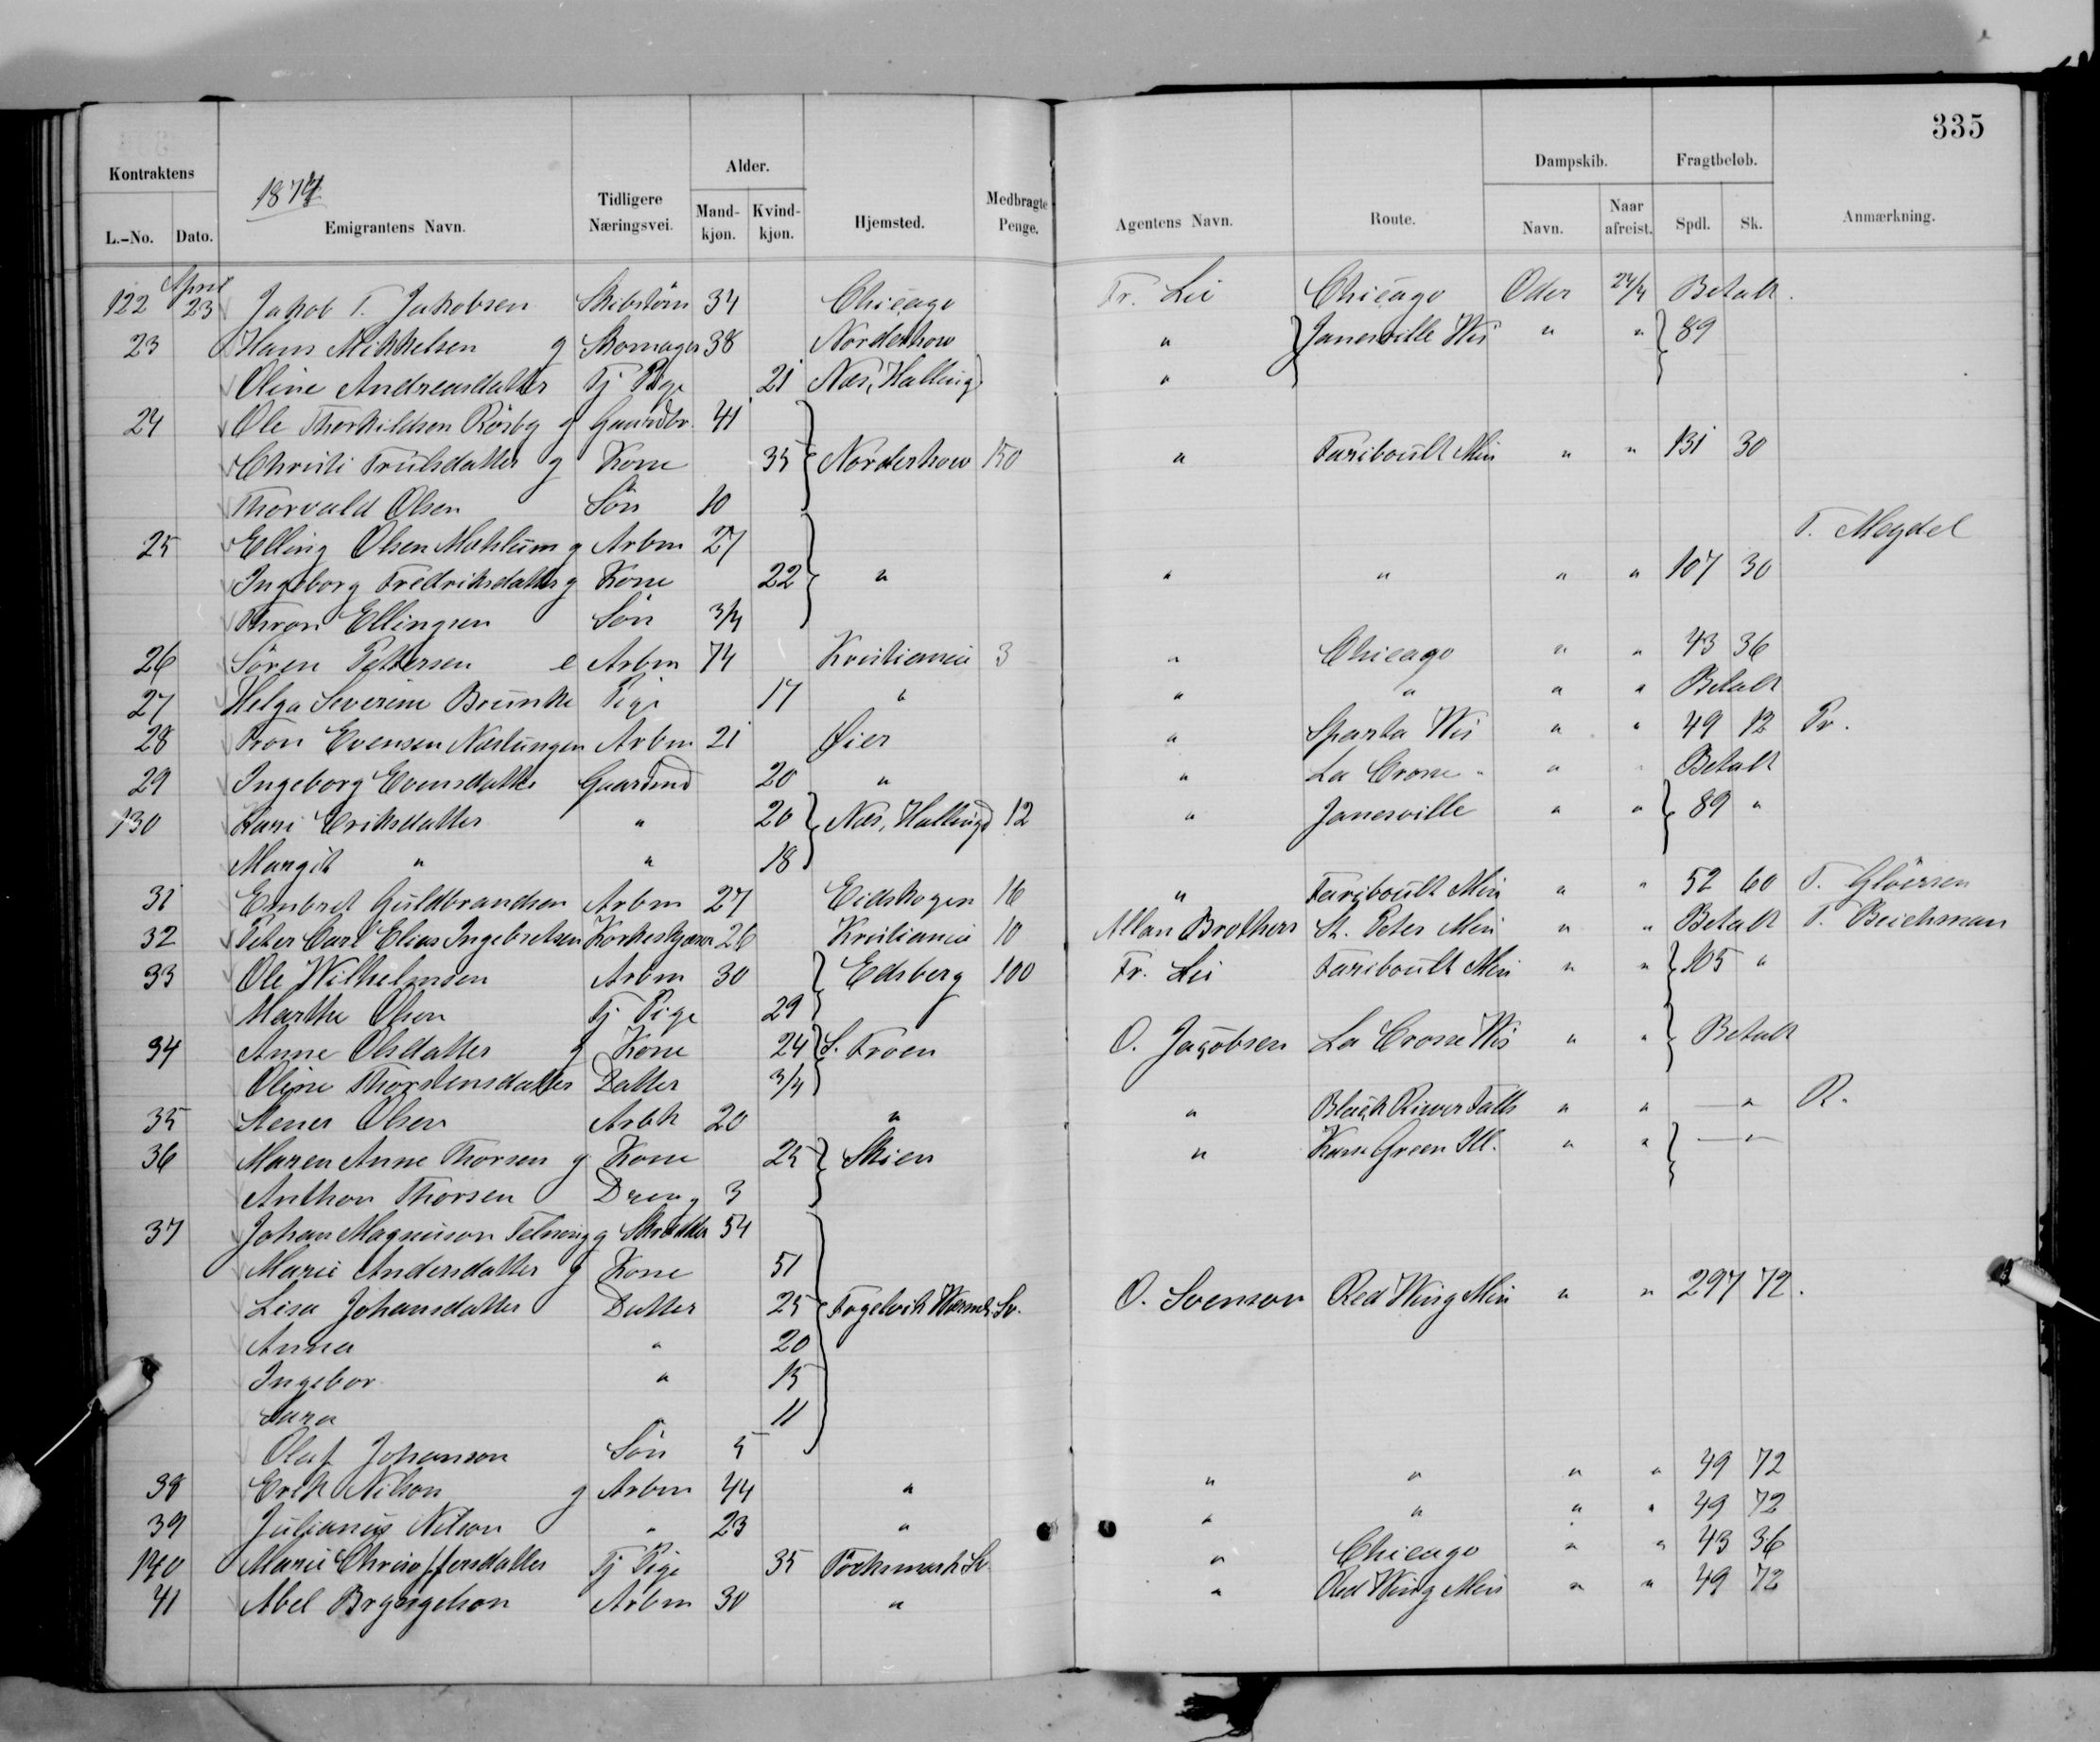 335
Kontraktens 1874 Emigrantens Navn. Tidligere Næringsvei. Alder. Hjemsted. Medbragte Penge. Agentens Navn. Route. Dampskib. Fragtbeløb. Anmærkning.
L.-No. Dato. Mand-kjøn. Kvind-kjøn. Navn. Naar afreist. Spdl. Sk.
122 April 23 Jakob T. Jakobsen Skibstøm 34 Chicago Fr. Lie Chicago Oder 24/4 Betalt.
23 Hans Mikkelsen g Skomager 38 Norderhow " } Janesville Wis " " } 89
Oline Andreasdatter Tj Pige 21 Næs, Halling "
24 Ole Thorkildsen Rösby g Gaardbr. 41
Christi Trulsdatter g Kone 35 } Norderhow 150 " Fariboult Min " " 131 30
Thorvald Olsen Sön 10
25 Elling Olsen Mohlum g Arbm 27 T. Mogdel
Ingeborg Fredriksdatter g Kone 22 } " " " " " 107 30
Thron Ellingsen Sön 3/4
26 Sören Pettersen e Arbm 74 Kristiania 3 " Chicago " " 43 36
27 Helga Severine Brunke Pige 17 " " " " " Betalt
28 Tron Evensen Næslungen Arbm 21 Øier " Sparta Wis " " 49 12 Pr.
29 Ingeborg Evensdatter Gaardmd 20 " " La Crosse " " " Betalt
130 Kari Eriksdatter " 20 } Næs, Hallingd 12 " Janesville " " } 89 "
Margit " " 18
31 Embret Guldbrandsen Arbm 27 Eidskogen 16 " Fariboult Min " " 52 60 T. Gløersen
32 Peter Carl Elias Ingebretsen Korkeskjærer 26 Kristiania 10 Allan Brothers St. Peter Min " " Betalt T. Beichman
33 Ole Wilhelmsen Arbm 30 } Edsberg 100 Fr. Lie Fariboult Min " " } 105 "
Marthe Olsen Tj. Pige 29
34 Anne Olsdatter g Kone 24 } S. Froen O. Jacobsen La Crosse Wis " " } Betalt
Oline Thorstensdatter Datter 3/4
35 Stener Olsen Arbk 20 " " Black River Falls " " — " R.
36 Maren Anne Thorsen g Kone 25 } Skien " Kane Green Ill. " " } — " —
Anthon Thorsen Dreng 3
37 Johan Magnuson Telning g Skrædder 54
Marie Andersdatter g Kone 51
Lisa Johansdatter Datter 25 } Fogelvik Wermel. Sv. O. Svenson Red Wing Min " " 297 72.
Anna " 20
Ingebor " 15
Sara " 11
Olaf Johanson Sön 5
38 Erik Nilson g Arbm 44 " " " " " 49 72
39 Julianus Nilson " 23 " " " " " 49 72
140 Marie Christoffersdatter Tj Pige 35 Töcksmark Sv. " Chicago " " 43 36
41 Abel Bryngelson Arbm 30 " " Red Wing Min " " 49 72